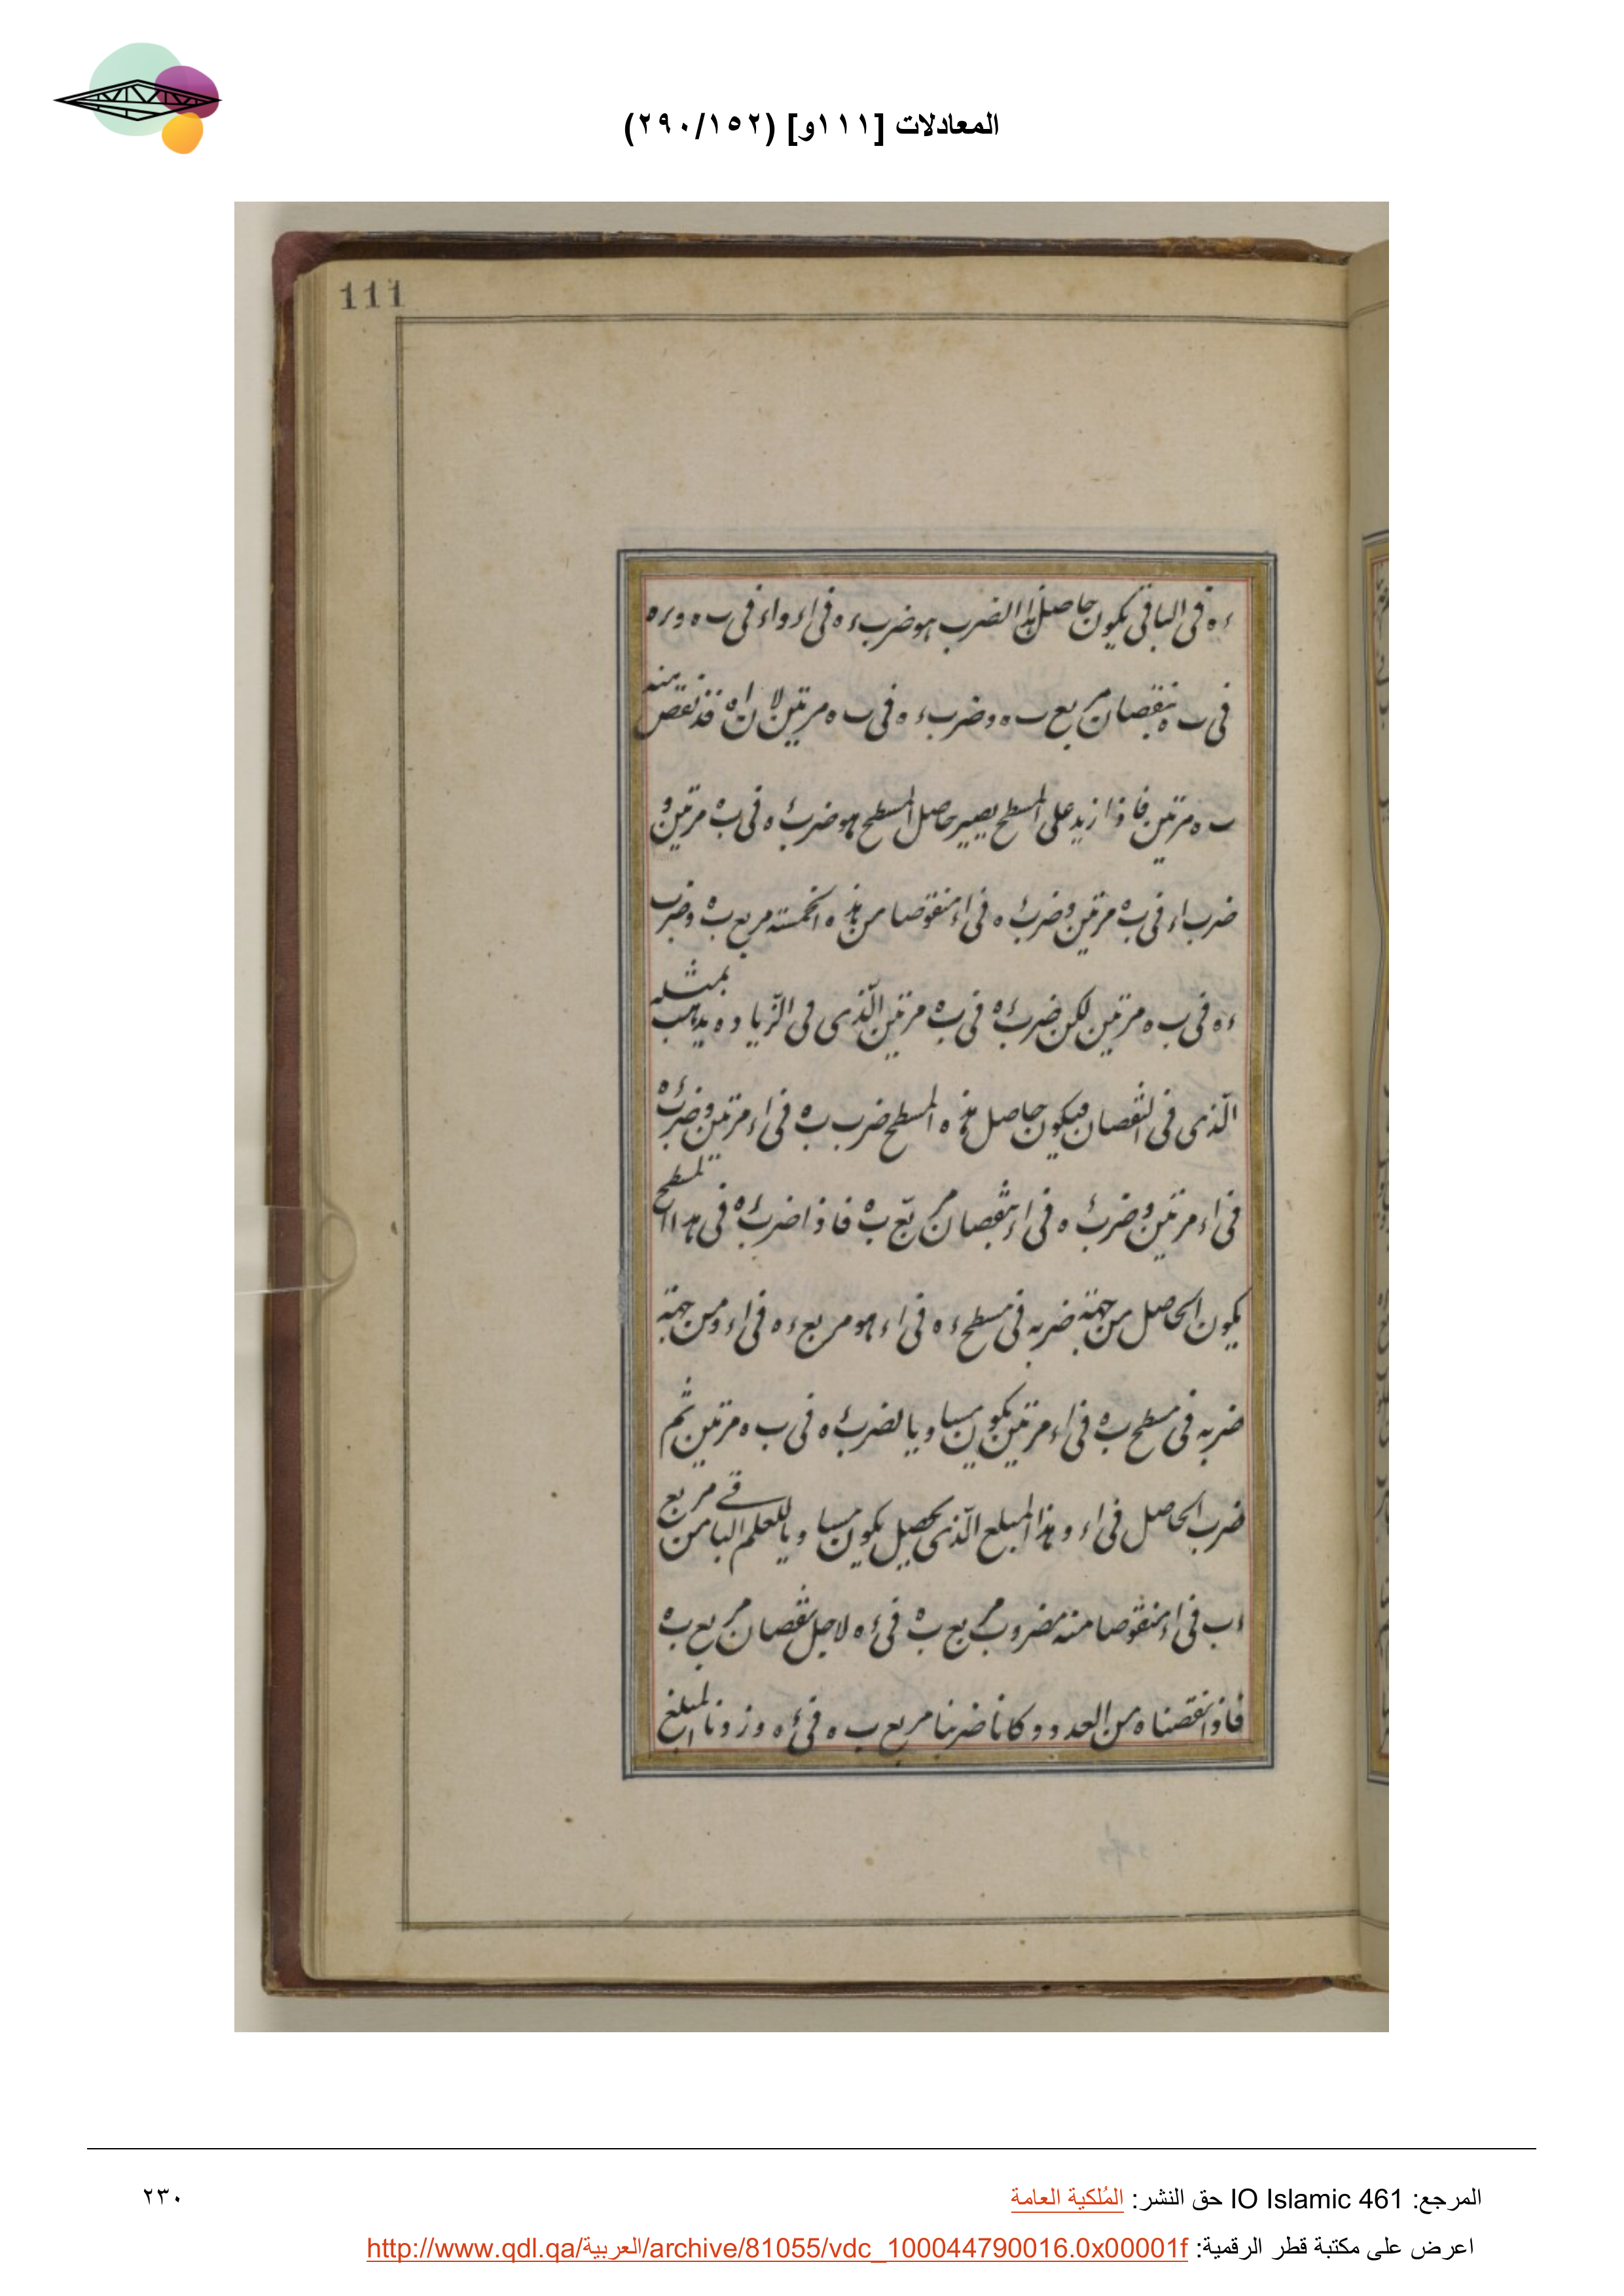 المعادلات [١١١و] (٢٩٠/١٥٢)
111
ءه فى الباقى يكون حاصل هذا الضرب هو ضرب ءه فى اء واء فى ب ه و ءه
فى ب ه بنقصان مربع ب ه وضرب ءه فى ب ه مرتين لان اه قد نقص منه
ب ه مرتين فاذا زيد على المسطح يصير حاصل المسطح هو ضرب ءه فى ب ه مرتين و
ضرب اء فى ب ه مرتين وضرب ءه فى اء منقوصا من هذه الخمسة مربع ب ه وضرب
ءه فى ب ه مرتين لكن ضرب ءه فى ب ه مرتين الّذى فى الزيادة يذهب بمثله
الّذى فى النقصان فيكون حاصل هذه المسطح ضرب ب ه فى اء مرتين وضرب ءه
فى اء مرتين وضرب ءه فى اء بنقصان مربّع ب ه فاذا ضرب ءه فى هذا المسطح
يكون الحاصل من جهة ضربه فى مسطح ءه فى اء هو مربع ءه فى اء ومن جهة
ضربه فى مسطح ب ه فى اء مرتين يكون مساويا لضرب ءه فى ب ه مرتين ثم
ضرب الحاصل فى اء وهذا المبلغ الّذى يحصل يكون مساويا للعلم الباقى من مربع
اب فى اء منقوصا منه مضروب مربع ب ه فى ءه لاجل نقصان مربع ب ه
فاذا نقصناه من العدد وكانا ضربنا مربع ب ه فى ءه وزدنا المبلغ
المرجع: IO Islamic 461 حق النشر: المُلكية العامة
٢٣٠
اعرض على مكتبة قطر الرقمية: http://www.qdl.qa/العربية/archive/81055/vdc_100044790016.0x00001f